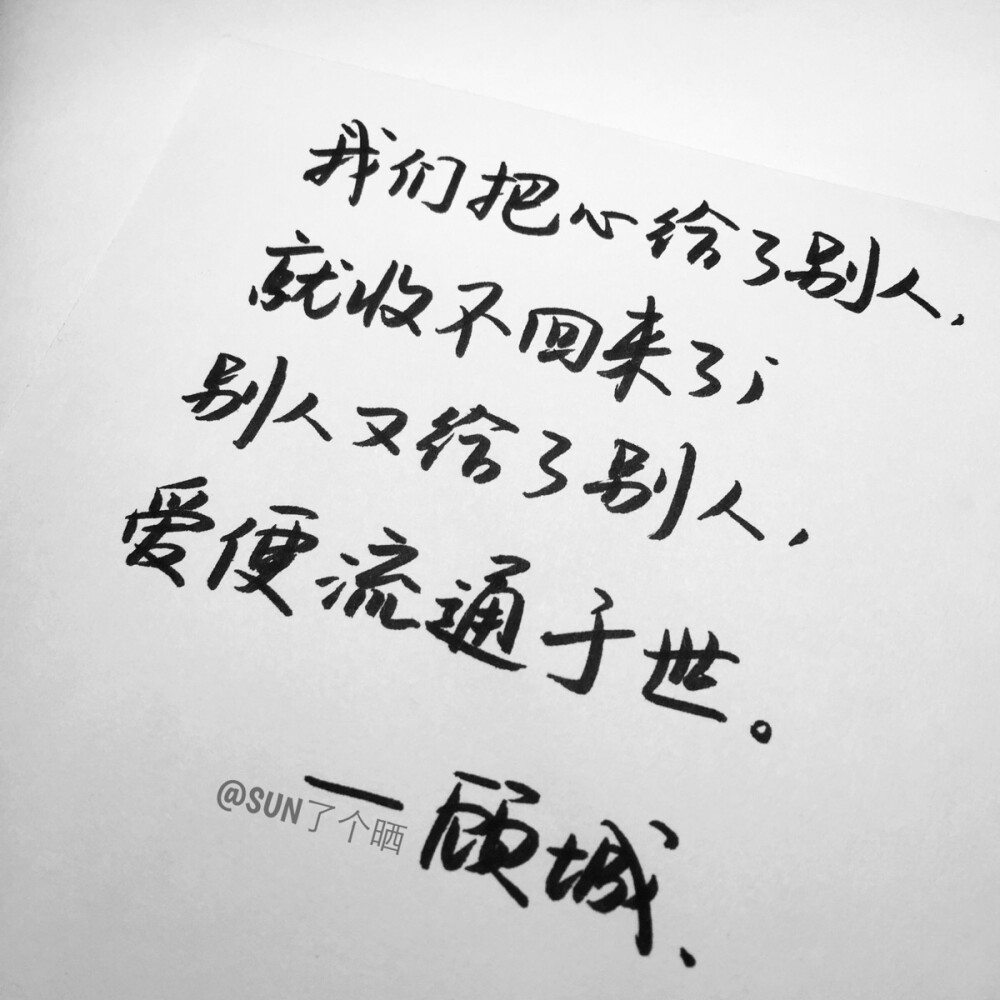 我们把心给了别人，
就收不回来了；
别人又给了别人，
爱便流通于世。
—顾城.
@SUN了个晒